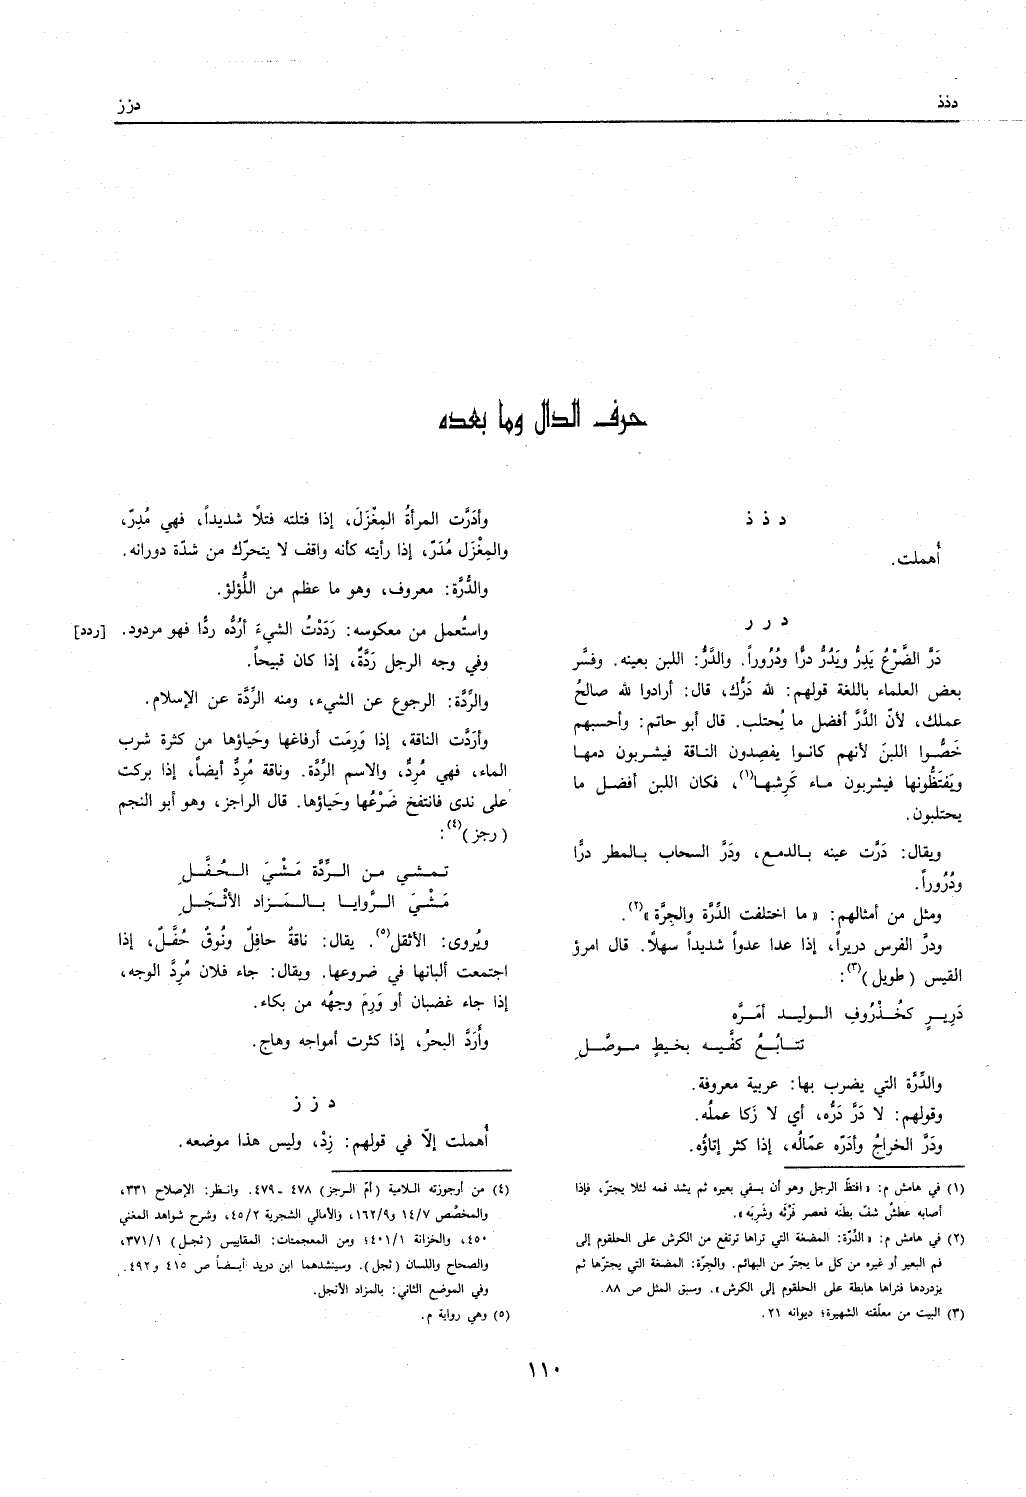 دذذ
دزز
حرف الدال وما بعده
د ذ ذ
أُهملت.
د ر ر
دَرَّ الضَّرْعُ يَدِرُّ ويَدُرُّ درًّا ودُرُوراً. والدَّرُّ: اللبن بعينه. وفسَّر
بعض العلماء باللغة قولهم: لله دَرُّك، قال: أرادوا لله صالحُ
عملك، لأنّ الدَّرَّ أفضل ما يُحتلب. قال أبو حاتم: وأحسبهم
خَصُّوا اللبنَ لأنهم كانـوا يفصِدون النـاقة فيشـربون دمهـا
ويَفتَظُّونها فيشربون مـاء كَرِشهـا(١)، فكان اللبن أفضـل ما
يحتلبون.
ويقال: دَرَّت عينه بـالدمـع، ودَرَّ السحاب بـالمطر درًّا
ودُرُوراً.
ومثل من أمثالهم: «ما اختلفت الدِّرَّة والجِرَّة»(٢).
ودرَّ الفرس دريراً، إذا عدا عدواً شديداً سهلاً. قال امرؤ
القيس (طويل)(٣):
دَرِيـرٍ كخُـذْروفِ الـوليـد أمَـرَّه
تتـابُـعُ كفَّيـه بخيطٍ مـوصَّـلِ
والدِّرَّة التي يضرب بها: عربية معروفة.
وقولهم: لا دَرَّ دَرُّه، أي لا زَكا عملُه.
ودَرَّ الخراجُ وأدَرّه عمّالُه، إذا كثر إتاؤُه.
(١) في هامش م: «افتظّ الرجل وهو أن يسقي بعيره ثم يشد فمه لئلا يجترّ، فإذا
أصابه عطشٌ شقّ بطنَه فعصر فَرْثَه وشَرِبَه».
(٢) في هامش م: «الدِّرّة: المضغة التي تراها ترتفع من الكرش على الحلقوم إلى
فم البعير أو غيره من كل ما يجترّ من البهائم. والجِرّة: المضغة التي يجترّها ثم
يزدردها فتراها هابطة على الحلقوم إلى الكرش». وسبق المثل ص ٨٨.
(٣) البيت من معلّقته الشهيرة؛ ديوانه ٢١.
وأدَرَّت المرأةُ المِغْزَلَ، إذا فتلته فتلًا شديداً، فهي مُدِرّ،
والمِغْزَل مُدَرّ، إذا رأيته كأنه واقف لا يتحرّك من شدّة دورانه.
والدُّرَّة: معروف، وهو ما عظم من اللُّؤلؤ.
واستُعمل من معكوسه: رَدَدْتُ الشيءَ أرُدُّه ردًّا فهو مردود. [ردد]
وفي وجه الرجل رَدَّةٌ، إذا كان قبيحاً.
والرِّدَّة: الرجوع عن الشيء، ومنه الرِّدَّة عن الإسلام.
وأرَدَّت الناقة، إذا وَرِمَت أرفاغها وحَياؤها من كثرة شرب
الماء، فهي مُرِدٌّ، والاسم الرِّدَّة. وناقة مُرِدٌّ أيضاً، إذا بركت
على ندى فانتفخ ضَرْعُها وحَياؤها. قال الراجز، وهو أبو النجم
(رجز)(٤):
تـمـشـي مـن الـرِّدَّة مَـشْـيَ الـحُـفَّـلِ
مَـشْـيَ الـرَّوايـا بـالـمَـزاد الأثْـجَـلِ
ويُروى: الأثقل(٥). يقال: ناقةٌ حافِلٌ ونُوقٌ حُفَّلٌ، إذا
اجتمعت ألبانها في ضروعها. ويقال: جاء فلان مُرِدَّ الوجه،
إذا جاء غضبان أو وَرِمَ وجهُه من بكاء.
وأَرَدَّ البحرُ، إذا كثرت أمواجه وهاج.
د ز ز
أُهملت إلّا في قولهم: زِدْ، وليس هذا موضعه.
(٤) من أرجوزته اللامية (أمّ الرجز) ٤٧٨ ـ ٤٧٩. وانظر: الإصلاح ٣٣١،
والمخصَّص ١٤/٧ و١٦٢/٩، والأمالي الشجرية ٤٥/٢، وشرح شواهد المغني
٤٥٠، والخزانة ٤٠١/١؛ ومن المعجمات: المقاييس (ثجل) ٣٧١/١،
والصحاح واللسان (ثجل). وسينشدهما ابن دريد أيضاً ص ٤١٥ و٤٩٢.
وفي الموضع الثاني: بالمزاد الأنجل.
(٥) وهي رواية م.
١١٠